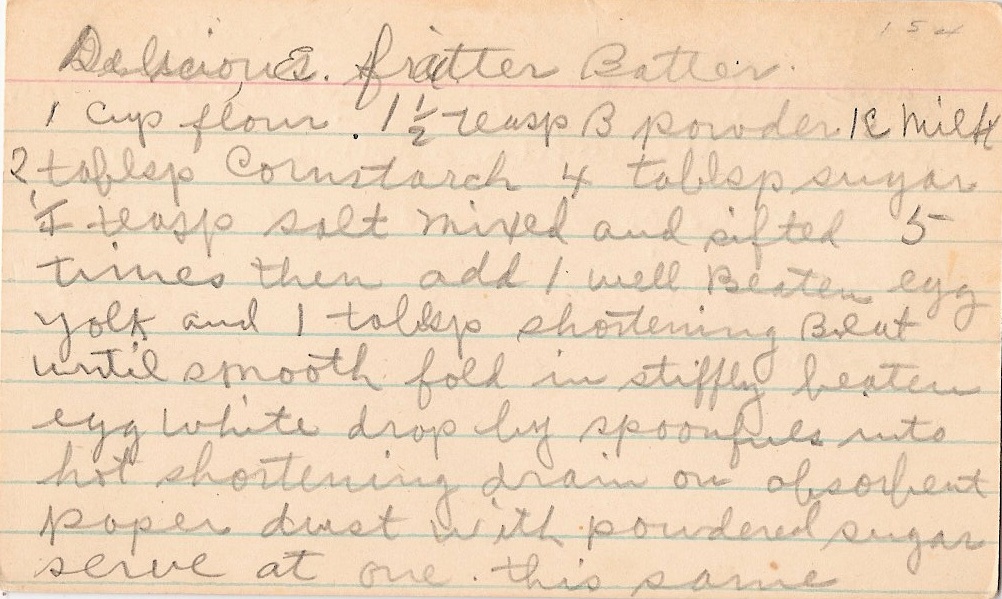 154
Delicious. fritter Batter.
1 Cup flour. 1 1/2 teasp B powder 1c Milk
2 tablsp Cornstarch 4 tablsp sugar
1/4 teasp salt mixed and sifted 5
times then add 1 well Beaten egg
yolk and 1 tablsp shortening Beat
until smooth fold in stiffly beaten
egg white drop by spoonfuls into
hot shortening drain on absorbent
paper dust with powdered sugar
serve at one. this same